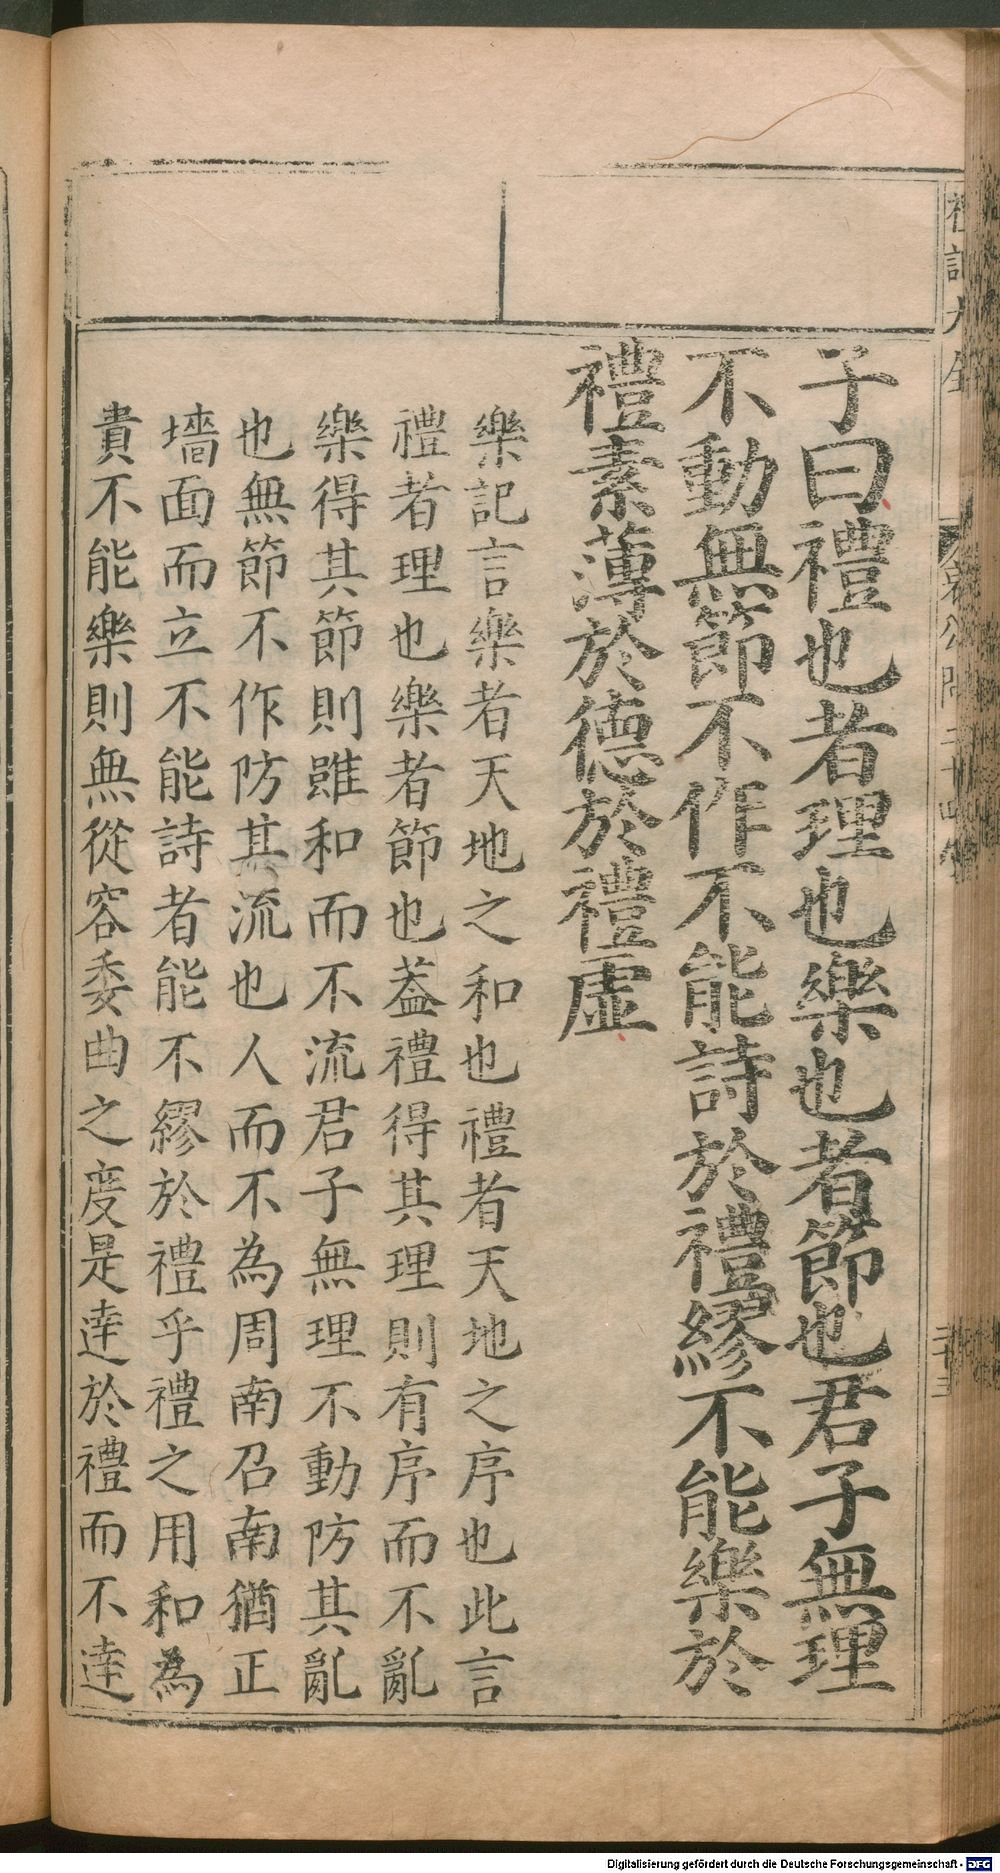 子曰禮也者理也樂也者節也君子無理
不動無節不作不能詩於禮繆不能樂於
禮素薄於德於禮虛
樂記言樂者天地之和也禮者天地之序也此言
禮者理也樂者節也蓋禮得其理則有序而不亂
樂得其節則雖和而不流君子無理不動防其亂
也無節不作防其流也人而不為周南召南猶正
墻面而立不能詩者能不繆於禮乎禮之用和為
貴不能樂則無從容委曲之度是達於禮而不達
Digitalisierung gefördert durch die Deutsche Forschungsgemeinschaft - DFG